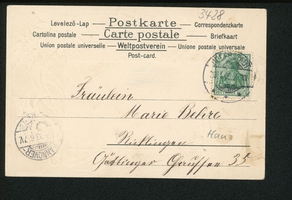 3438
Levelező-Lap — Postkarte — Correspondenzkarte
Cartolina postale — Carte postale — Briefkaart
Union postale universelle — Weltpostverein — Unione postale universale
Post-card.
Fräulein
Marie Behre
Ricklingen
Hann
Göttinger Chaussee 35
HANNOVER